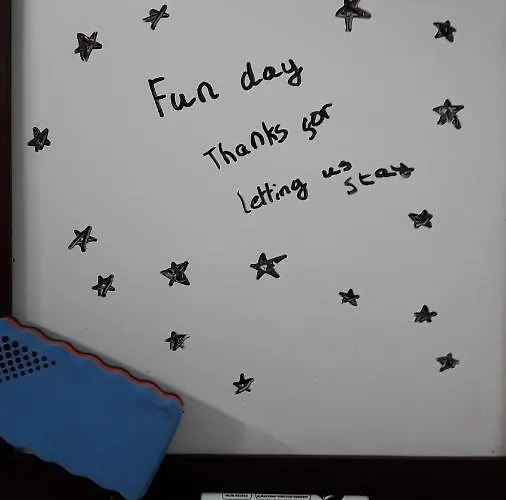 Fun day
Thanks for
letting us
stay